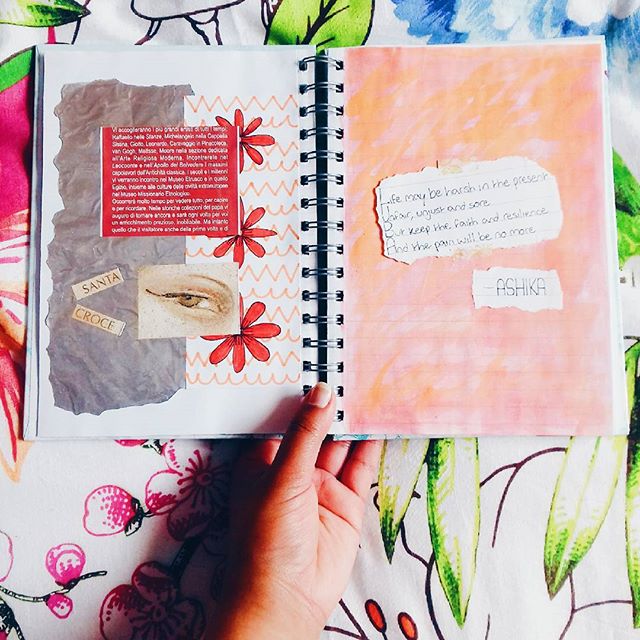 Vi accoglieranno i più grandi artisti di tutti i tempi,
Raffaello nelle Stanze, Michelangelo nella Cappella
Sistina, Giotto, Leonardo, Caravaggio in Pinacoteca,
van Gogh, Matisse, Moore nella sezione dedicata
all'Arte Religiosa Moderna. Incontrerete nel
Laocoonte e nell'Apollo del Belvedere i massimi
capolavori dell'Antichità classica. I secoli e i millenni
vi verranno incontro nel Museo Etrusco e in quello
Egizio, insieme alla culture delle civiltà extraeuropee
nel Museo Missionario Etnologico.
Occorrerà molto tempo per vedere tutto, per capire
e per ricordare. Nelle storiche collezioni dei papi vi
auguro di tornare ancora e sarà ogni volta per voi
un arricchimento prezioso, inobliabile. Ma intanto
quello che il visitatore anche della prima volta e di
SANTA
CROCE
Life may be harsh in the present
Unfair, unjust and sore
But keep the faith and resilience
And the pain will be no more
- ASHIKA